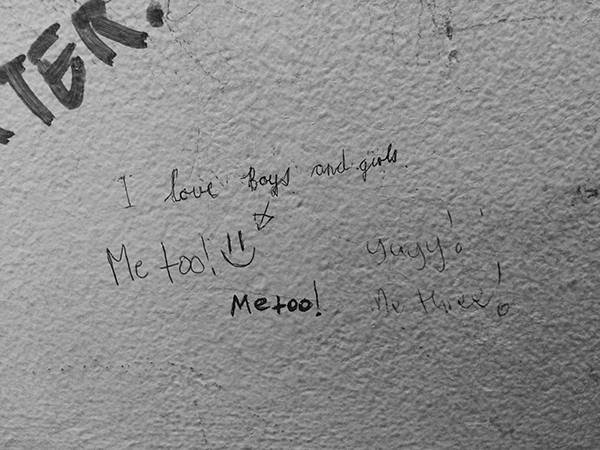 TER.
I love Boys and girls.
Me too!
yayy!
Me too!
Me three!